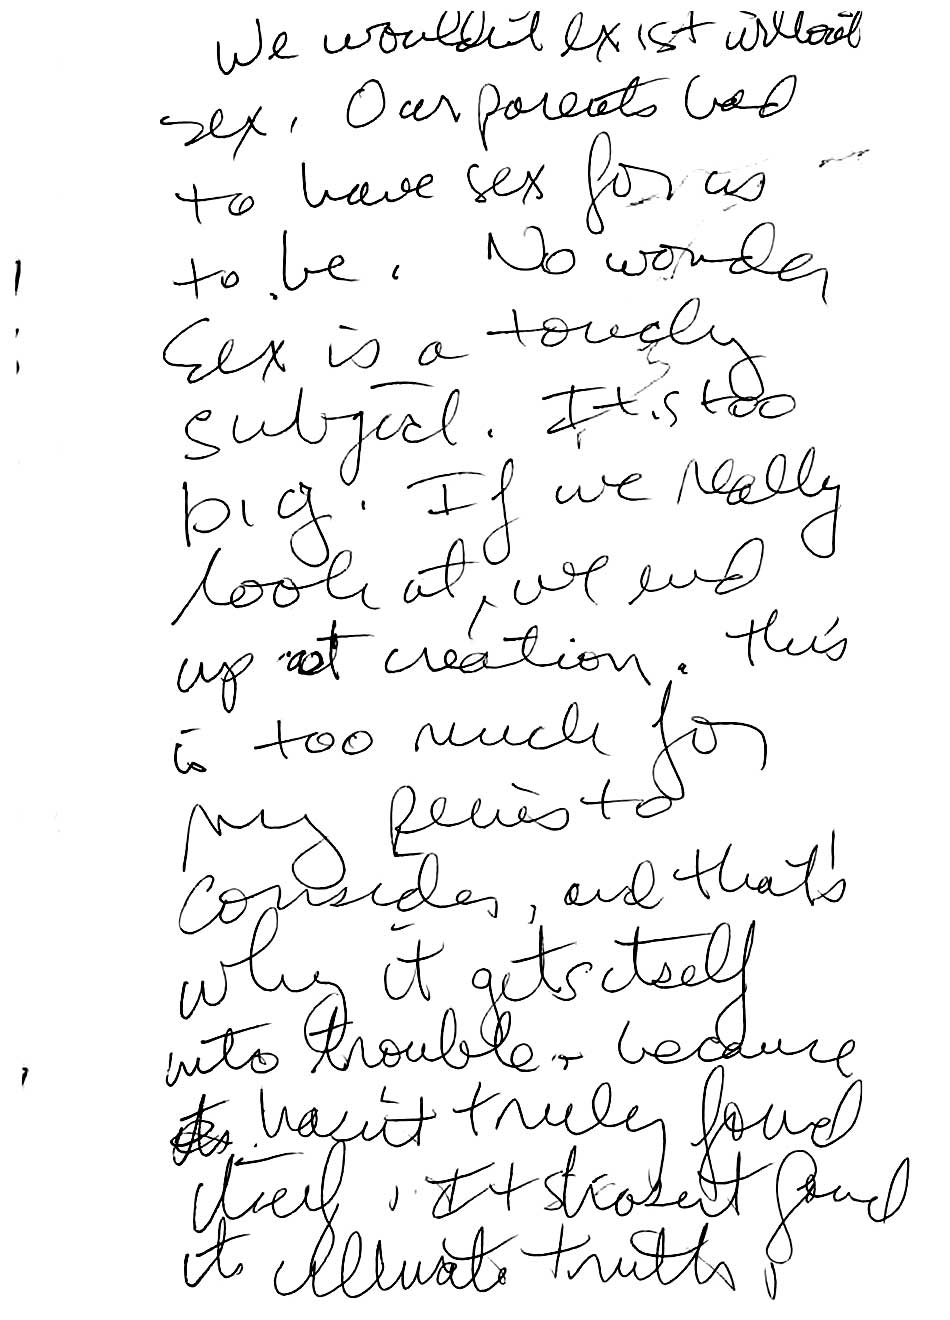 We wouldn't exist without
sex. Our parents had
to have sex for us
to be. No wonder
Sex is a touchy
subject. It is too
big. If we really
look at, we end
up at creation. This
is too much for
my penis to
consider, and that's
why it gets itself
into trouble - because
it hasn't truly found
itself. It hasn't found
its ultimate truth.